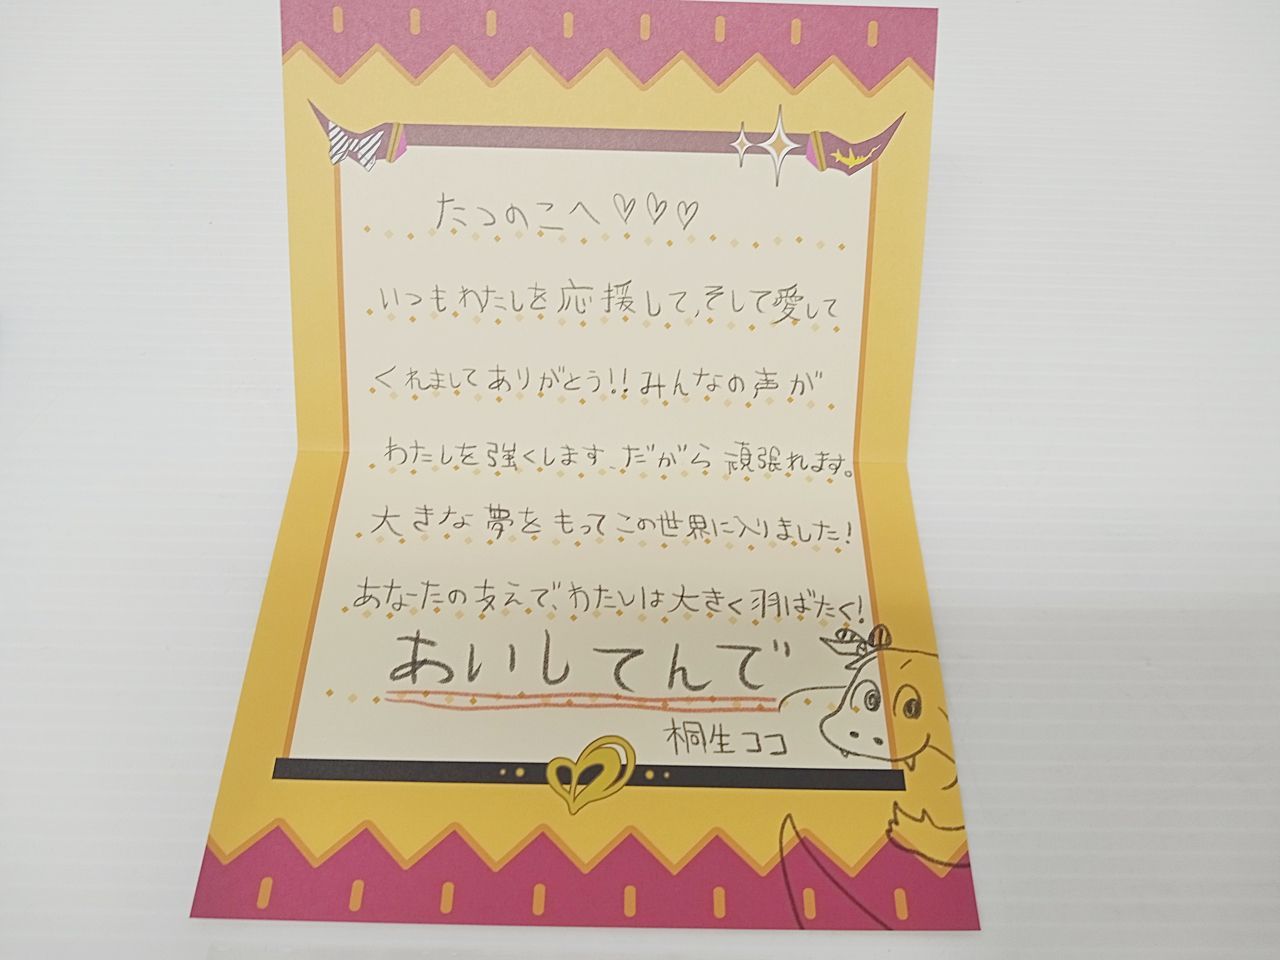 たつのこへ♡♡♡
いつもわたしを応援して、そして愛して
くれましてありがとう!!みんなの声が
わたしを強くします、だがら頑張れます。
大きな夢をもってこの世界に入りました!
あなたの支えで、わたしは大きく羽ばたく!
あいしてんで
桐生ココ